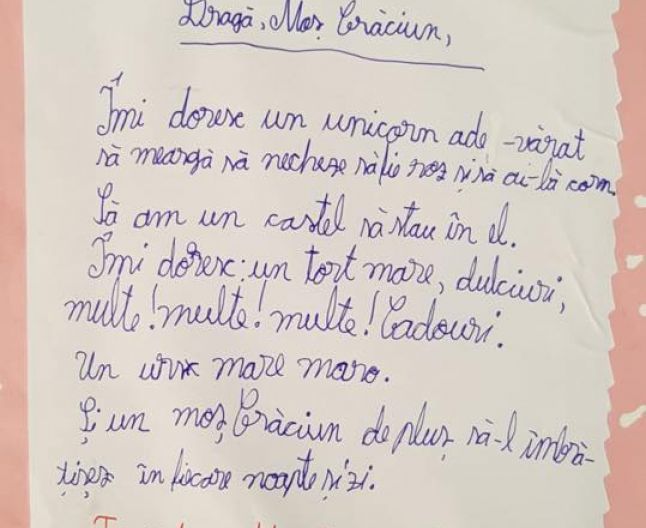 Dragă, Moș Crăciun,
Îmi doresc un unicorn ade-vărat
să meargă să necheze să fie roz și să ai-lă corn.
Să am un castel să stau în el.
Îmi doresc: un tort mare, dulciuri,
multe! multe! multe! Cadouri.
Un urs mare maro.
Și un moș Crăciun de pluș să-l îmbră-
țișez în fiecare noapte și zi.